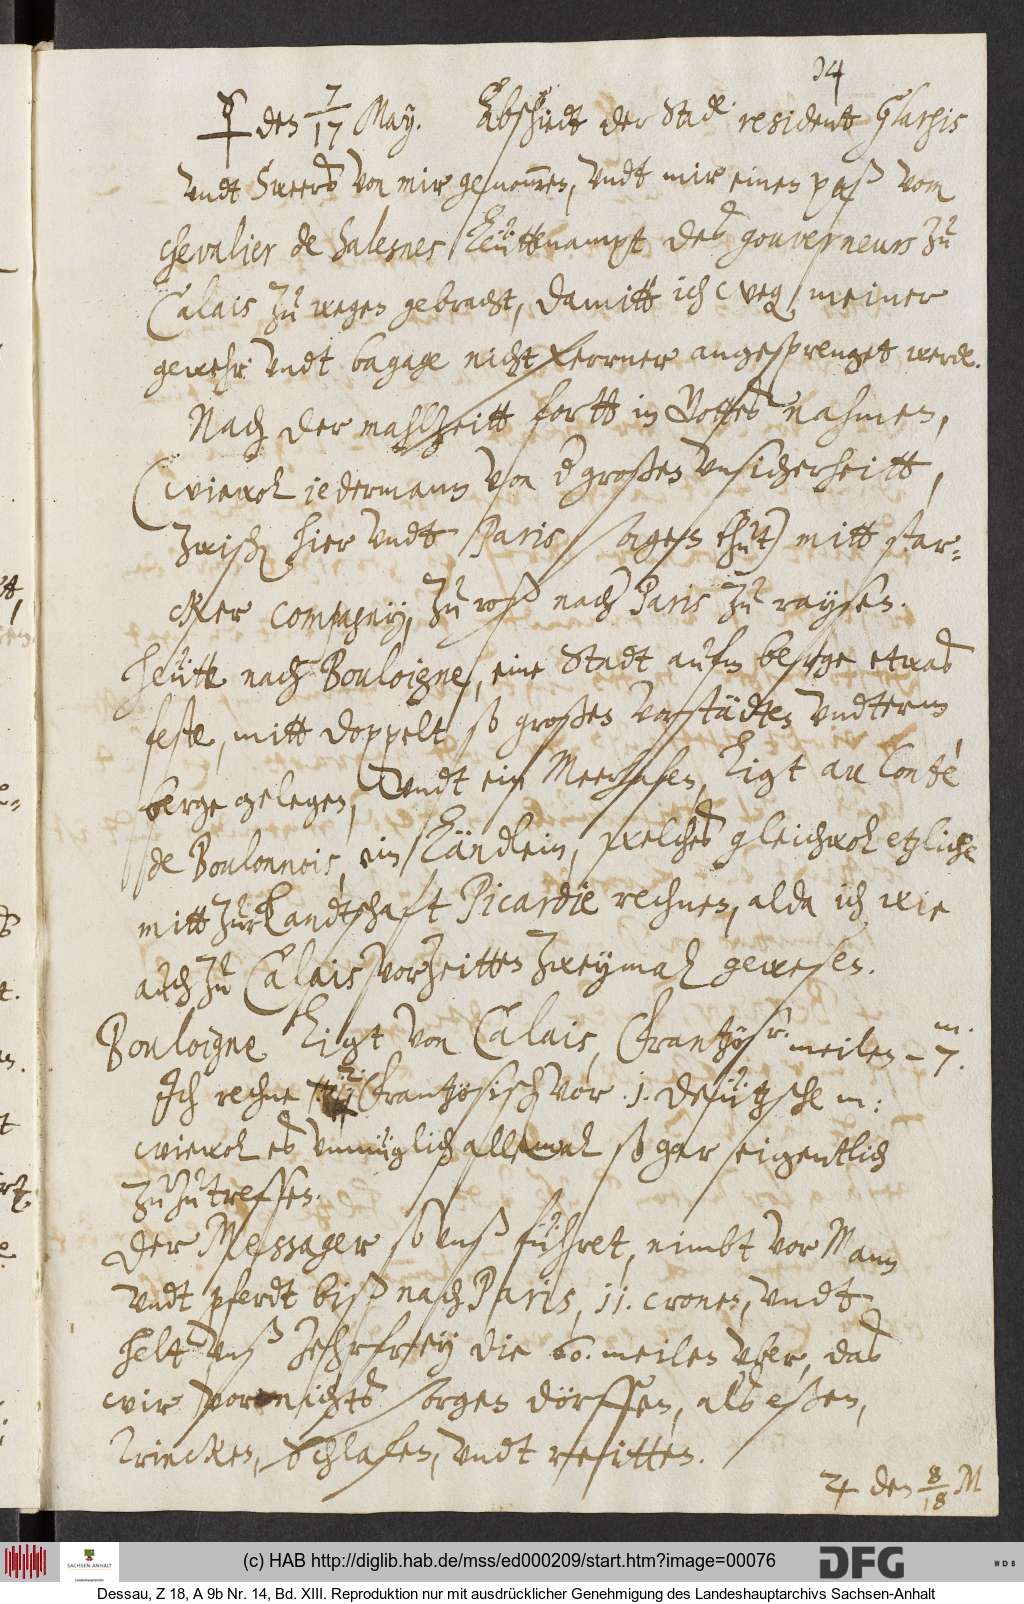 34
☿ den 7/17 May. Abschiedt der Stad resident Glarges
undt Sweerds von mir genommen, undt mir einen paß vom
chevalier de Salesnes Leüttenampt des gouverneurs zu
Calais zu wegen gebracht, damitt ich weg meiner
gewehr undt bagage nicht ferrner angesprenget werde.
Nach der mahlzeitt fortt in Gottes nahmen,
(wiewol iedermann von d großen unsicherheitt,
zwisch hier undt Paris sagen thut) mitt star-
cker compagny, zu roß nach Paris zu raysen.
Heütte nach Bouloigne, eine Stadt aufm berge etwas
feste, mitt doppelt so großen vorstädten undterm
berge gelegen, undt ein Meerhafen, ligt au Conté
de Boulonnois, ein Ländlein, welches gleichwol etzliche
mitt zur Landtschaft Picardie rechnen, alda ich wie
auch zu Calais vorzeitten zweymal gewesen.
Bouloigne ligt von Calais, frantzös. meilen – 7. m.
Ich rechne .2. frantzösisch vor .1. deützsche m:
wiewol es unmüglich allemal so gar eigentlich
zuzutreffen.
Der Messager so unß führet, nimbt vor Mann
undt pferdt biß nach Paris, 11. cronen, undt
helt unß zehrfrey die 60. meilen uber, das
wir vor nichts sorgen dörffen, als eßen,
trincken, Schlafen, undt reitten.
♃ den 8/18 M
(c) HAB http://diglib.hab.de/mss/ed000209/start.htm?image=00076
SACHSEN-ANHALT
DFG
WDB
Dessau, Z 18, A 9b Nr. 14, Bd. XIII. Reproduktion nur mit ausdrücklicher Genehmigung des Landeshauptarchivs Sachsen-Anhalt